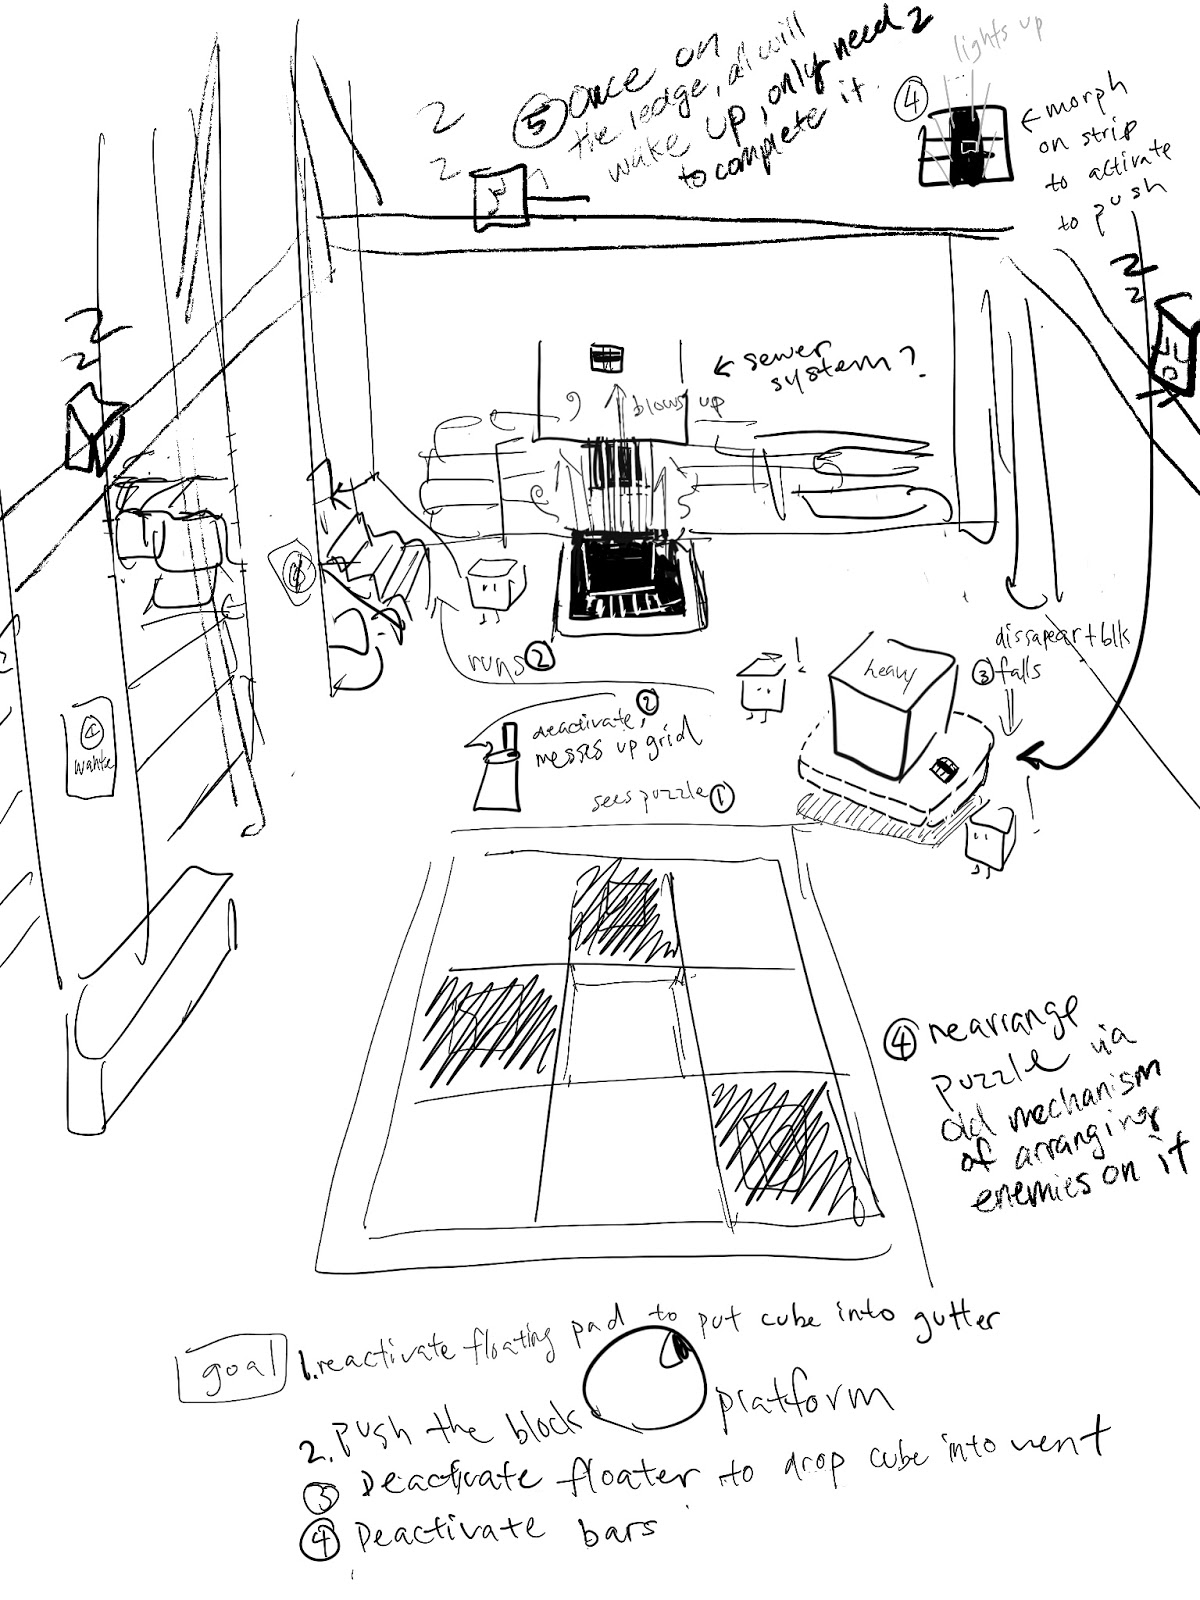 lights up
⑤ Once on
the ledge, all will
wake up, only need 2
to complete it.
④
← morph
on strip
to activate
to push
2
2
2
2
2
2
← sewer
system?
blows up
runs ②
!
heavy
dissapear + blk
③ falls
deactivate, ②
messes up grid
sees puzzle ①
!
④ rearrange
puzzle via
old mechanism
of arranging
enemies on it
goal
1. reactivate floating pad to put cube into gutter
2. push the block platform
③ Deactivate floater to drop cube into vent
④ Deactivate bars